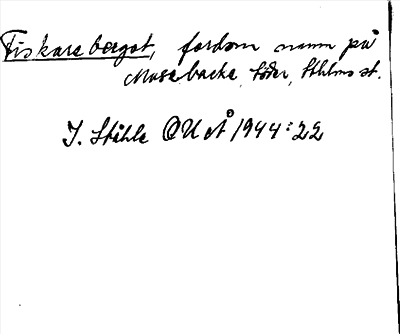 Fiskareberget, fordom namn på
Mosebacke, Söder, Sthlms st.
I. Ståhle OUÅ 1944:22